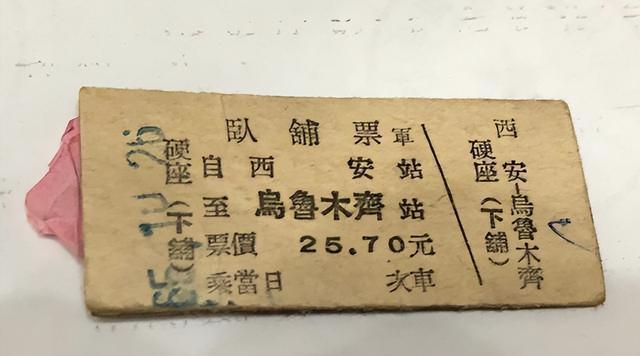 臥舖票軍
自西安站
至烏魯木齊站
票價 25.70元
乘當日 次車
硬座(下舖)
西安-烏魯木齊
硬座(下舖)